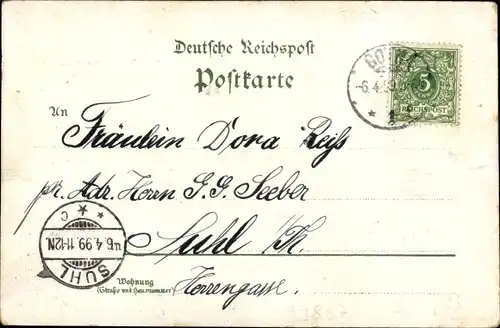 Deutsche Reichspost
Postkarte
5
REICHSPOST
-6.4.99
An
Fräulein Dora Reiß
pr. Adr. Herrn G. G. Seeber
Suhl i/Th.
Wohnung
(Straße und Hausnummer)
Herrengasse.
6.4.99. 11-12N
SUHL
* * C